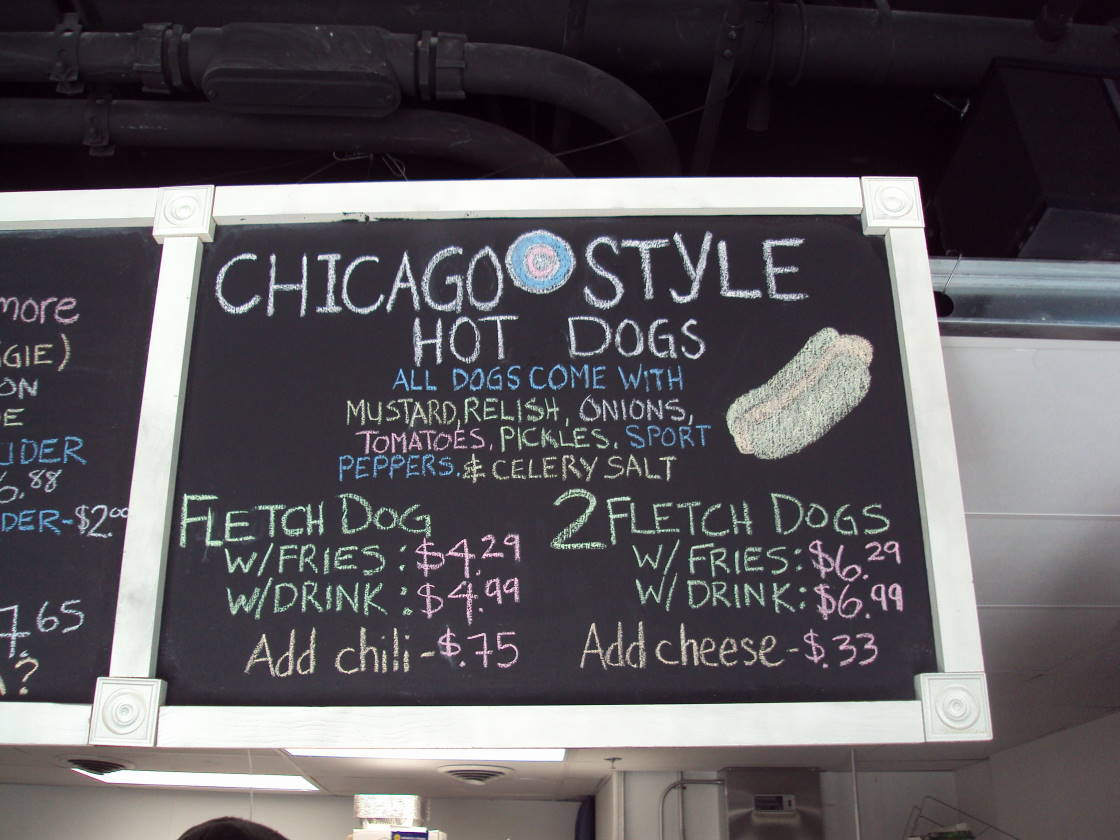 CHICAGO STYLE
HOT DOGS
ALL DOGS COME WITH
MUSTARD, RELISH, ONIONS,
TOMATOES, PICKLES, SPORT
PEPPERS. & CELERY SALT
FLETCH DOG
W/FRIES: $4.29
W/DRINK: $4.99
Add chili - $.75
2 FLETCH DOGS
W/ FRIES: $6.29
W/ DRINK: $6.99
Add cheese - $.33
more
GIE)
ON
DE
LIDER
6.88
DER - $2.00
7.65
?